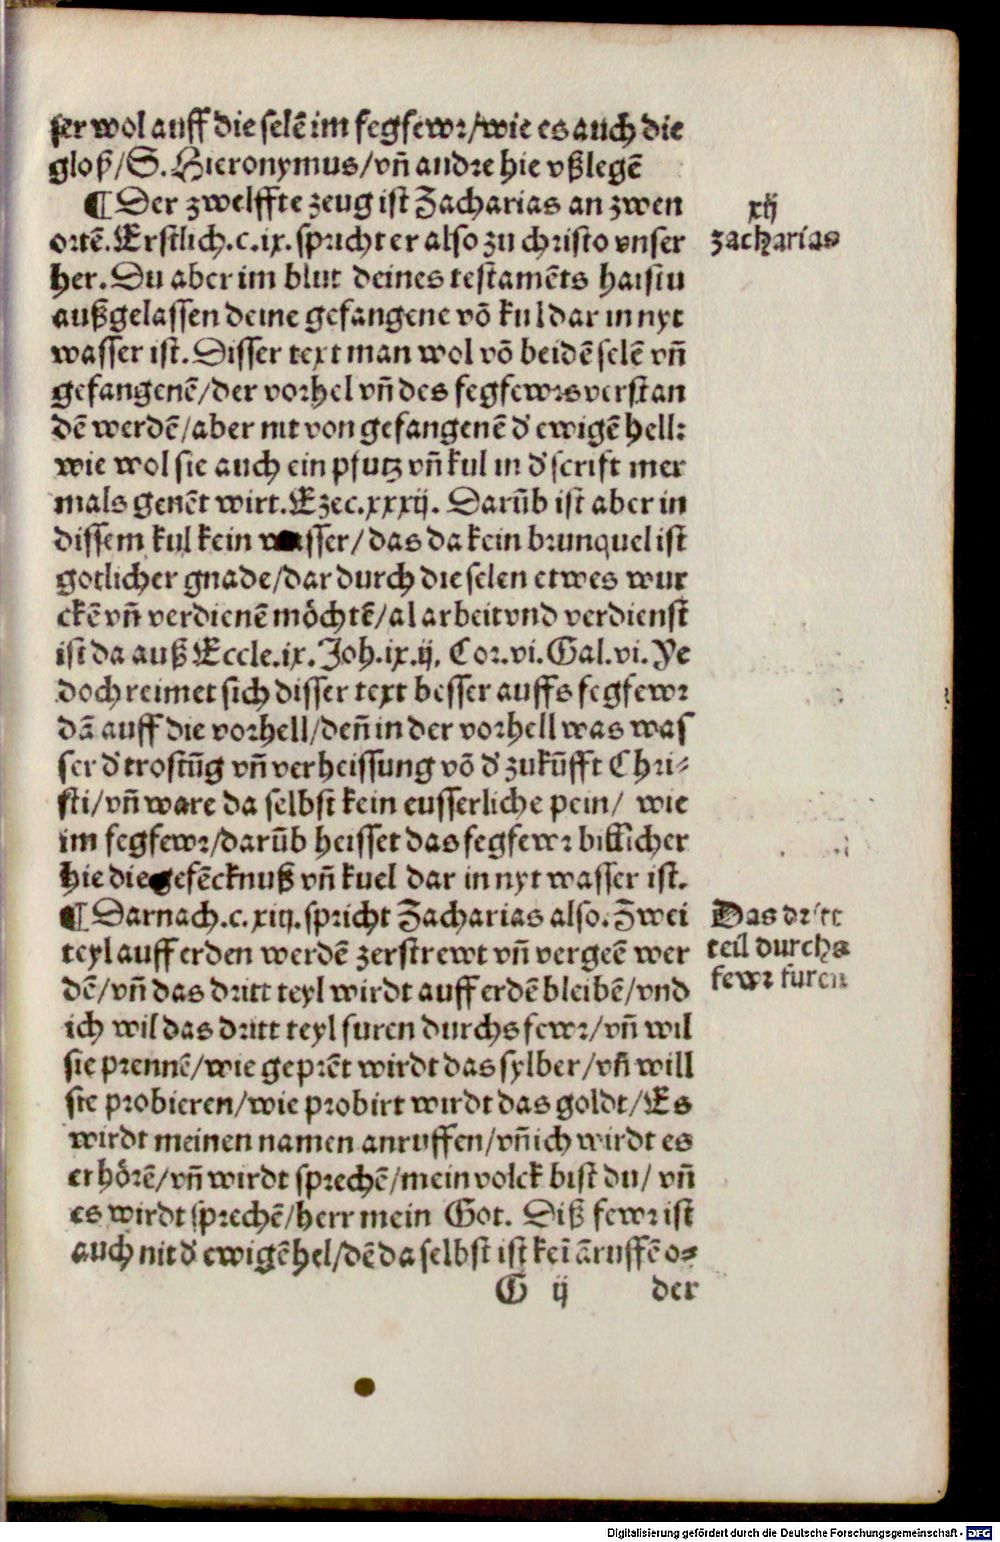 ser wol auff die selē im fegfewr/wie es auch die
gloß/S. Hieronymus/vñ andre hie vßlegē
¶ Der zwelffte zeug ist Zacharias an zwen
ortē. Erstlich.c.ix.spricht er also zu christo vnser
her. Du aber im blut deines testamēts haistu
außgelassen deine gefangene vō kul dar in nyt
wasser ist. Disser text man wol vō beidē selē vñ
gefangenē/der vorhel vñ des fegfewrs verstan
dē werdē/aber nit von gefangenē d' ewigē hell:
wie wol sie auch ein pfutz vñ kul in d' scrift mer
mals genēt wirt. Ezec.xxxij. Darūb ist aber in
dissem kul kein wasser/das da kein brunquel ist
gotlicher gnade/dar durch die selen etwes wur
ckē vñ verdienē möchtē/al arbeit vnd verdienst
ist da auß Eccle.ix. Joh.ix.ij. Cor.vi. Gal.vi. Ye
doch reimet sich disser text besser auffs fegfewr
dā auff die vorhell/deñ in der vorhell was was
ser d' trostūg vñ verheissung vō d' zukūfft Chri-
sti/vñ ware da selbst kein eusserliche pein/ wie
im fegfewr/darūb heisset das fegfewr billicher
hie die gefēcknuß vñ kuel dar in nyt wasser ist.
¶ Darnach.c.xiij.spricht Zacharias also. Zwei
teyl auff erden werdē zerstrewt vñ vergeē wer
dē/vñ das dritt teyl wirdt auff erdē bleibē/vnd
ich wil das dritt teyl furen durchs fewr/vñ wil
sie prennē/wie geprēt wirdt das sylber/vñ will
sie probieren/wie probirt wirdt das goldt/Es
wirdt meinen namen anruffen/vñ ich wirdt es
erhörē/vñ wirdt sprechē/mein volck bist du/ vñ
es wirdt sprechē/herr mein Got. Diß fewr ist
auch nit d' ewigē hel/dē da selbst ist keī āruffē o-
G ij der
xij
zacharias
Das dritt
teil durchs
fewr furen
Digitalisierung gefördert durch die Deutsche Forschungsgemeinschaft - DFG